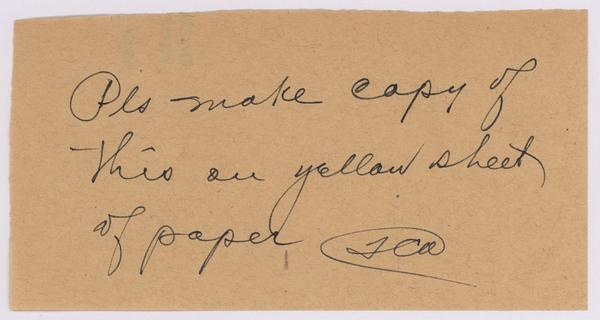 Pls make copy of
this on yellow sheet
of paper